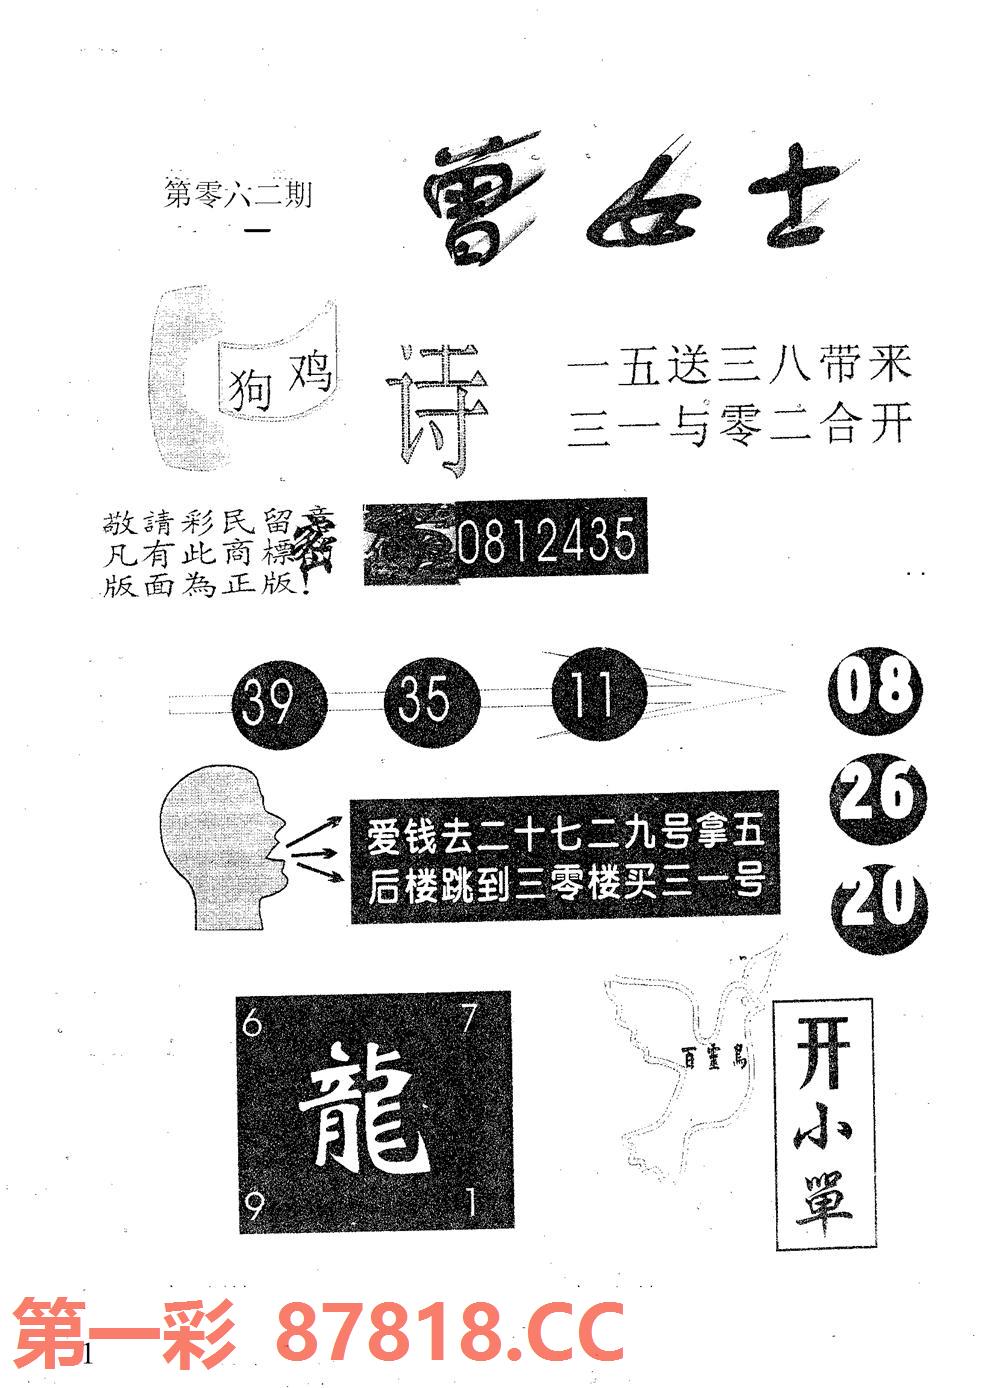 第零六二期
曾女士
狗 鸡
诗
一五送三八带来
三一与零二合开
敬請彩民留意
凡有此商標
版面為正版!
密
0812435
39 35 11
08
26
20
爱钱去二十七二九号拿五
后楼跳到三零楼买三一号
6 7
龍
9 1
百靈鳥
开小單
第一彩 87818.CC
1